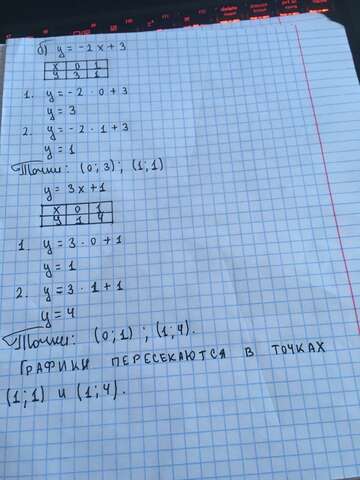 delete
б) y = -2x + 3
x 0 1
y 3 1
1. y = -2 · 0 + 3
y = 3
2. y = -2 · 1 + 3
y = 1
Точки: (0; 3); (1; 1)
y = 3x + 1
x 0 1
y 1 4
1. y = 3 · 0 + 1
y = 1
2. y = 3 · 1 + 1
y = 4
Точки: (0; 1) ; (1; 4).
ГРАФИКИ ПЕРЕСЕКАЮТСЯ В ТОЧКАХ
(1; 1) и (1; 4).